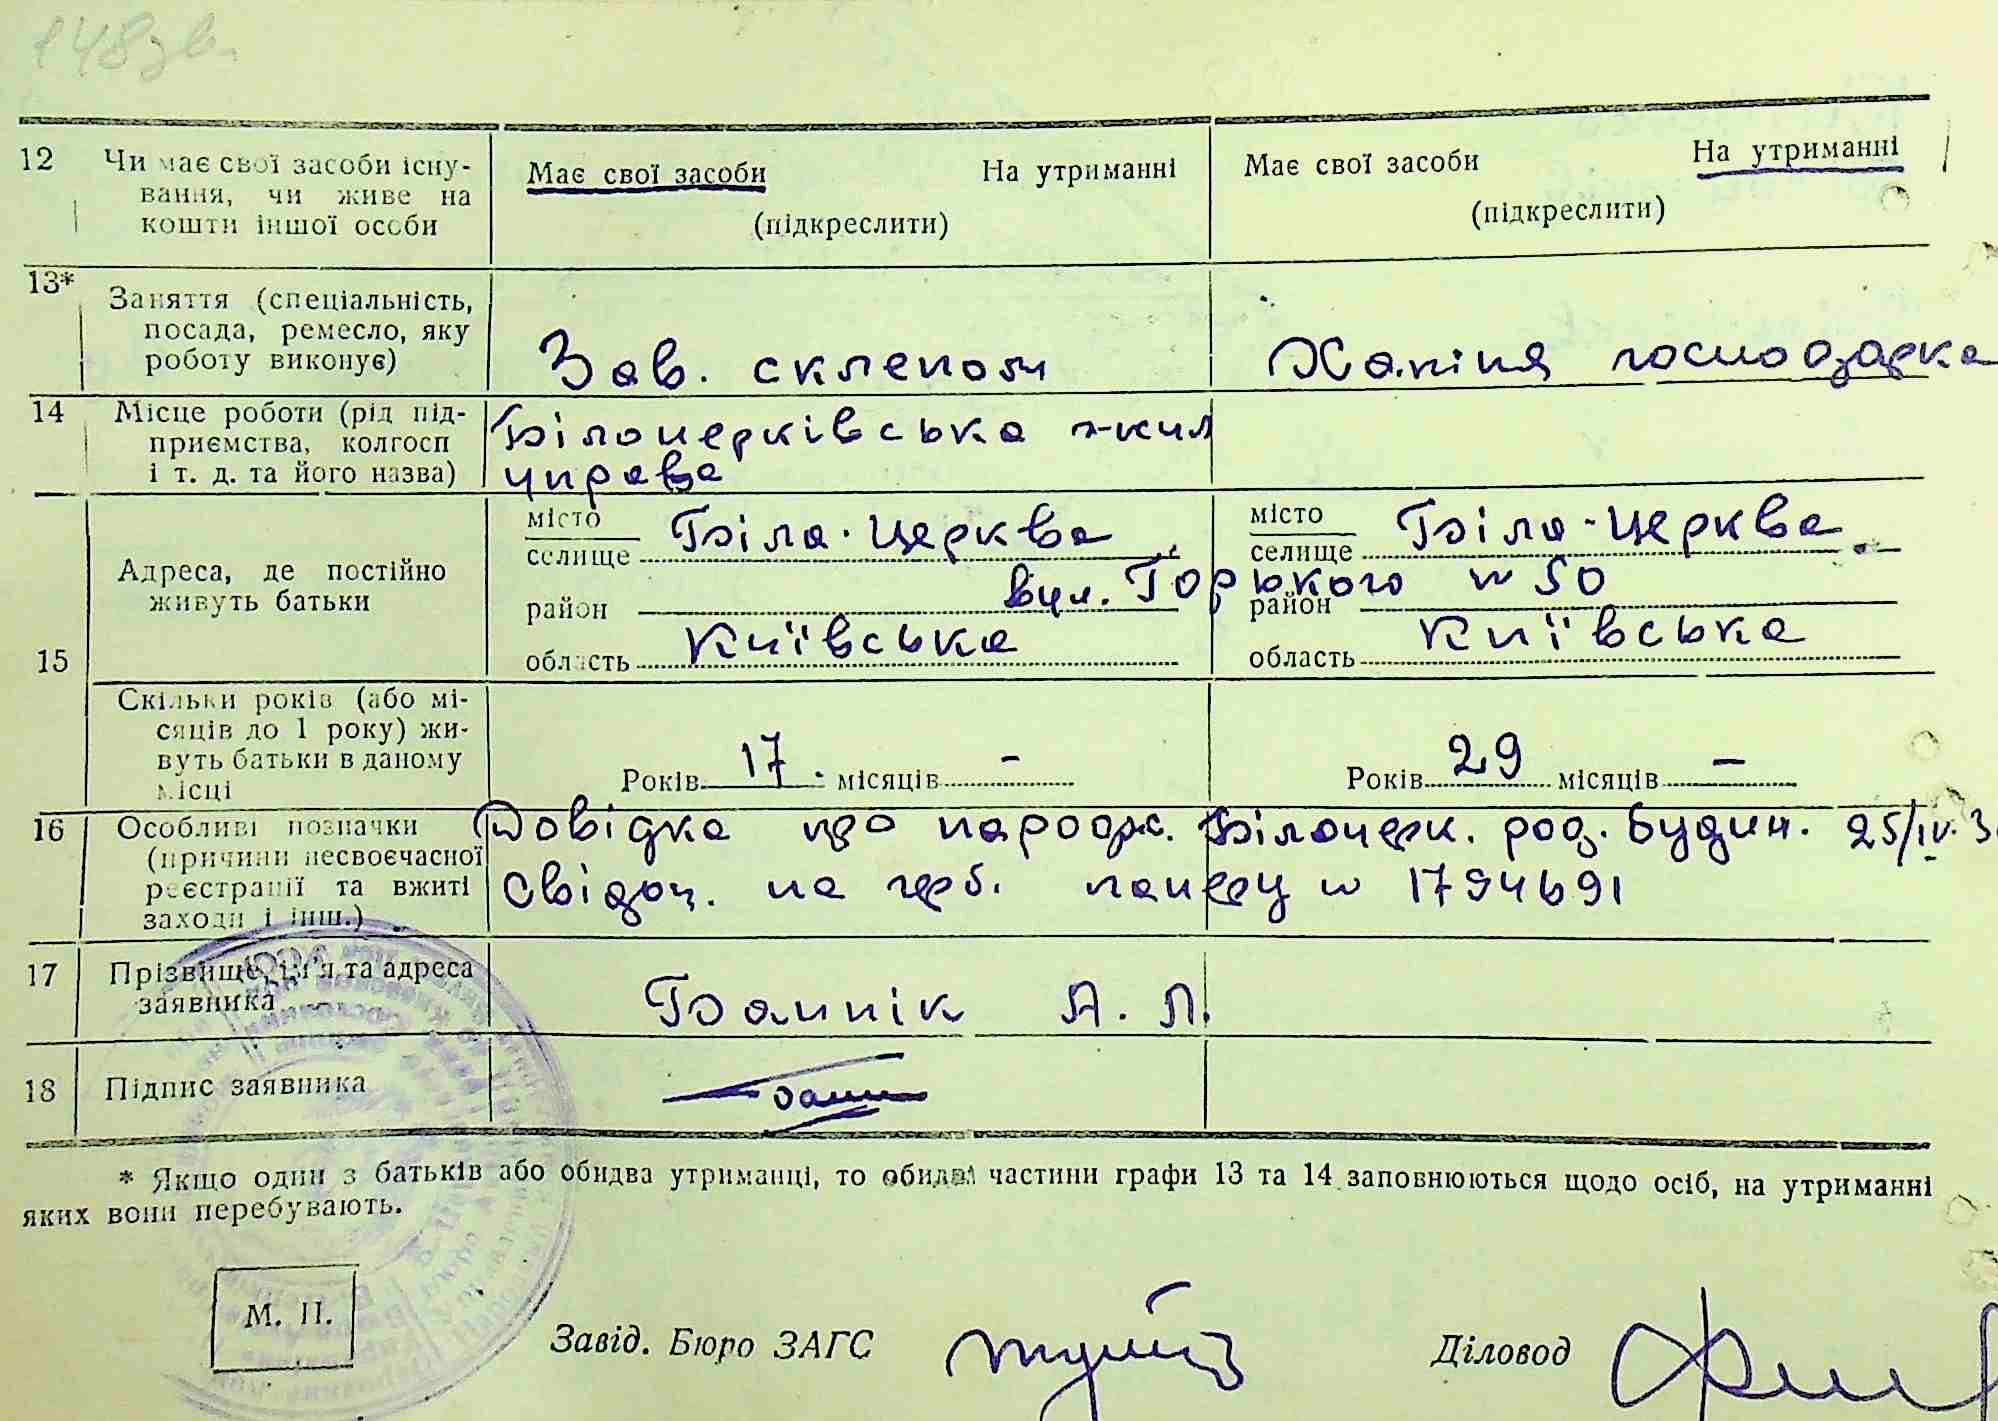 148зв.
12 Чи має свої засоби існу-
вання, чи живе на
кошти іншої особи
Має свої засоби На утриманні
(підкреслити)
Має свої засоби На утриманні
(підкреслити)
13* Заняття (спеціальність,
посада, ремесло, яку
роботу виконує)
Зав. склепом
Хатня господарка
14 Місце роботи (рід під-
приємства, колгосп
і т. д. та його назва)
Білоцерківська жил
управа
15 Адреса, де постійно
живуть батьки
місто
селище Біла-Церква
район вул. Горького № 50
область Київська
місто
селище Біла-Церква
район
область Київська
Скільки років (або мі-
сяців до 1 року) жи-
вуть батьки в даному
місці
Років 17. місяців -
Років 29 місяців -
16 Особливі позначки
(причини несвоєчасної
реєстрації та вжиті
заходи і інш.)
Довідка про народж. Білоцерк. род. будин. 25/IV. 3
Свідоц. на герб. паперу № 1794691
17 Прізвище, ім'я та адреса
заявника
А. Л.
18 Підпис заявника
* Якщо один з батьків або обидва утриманці, то обидві частини графи 13 та 14 заповнюються щодо осіб, на утриманні
яких вони перебувають.
М. П.
Завід. Бюро ЗАГС
Діловод